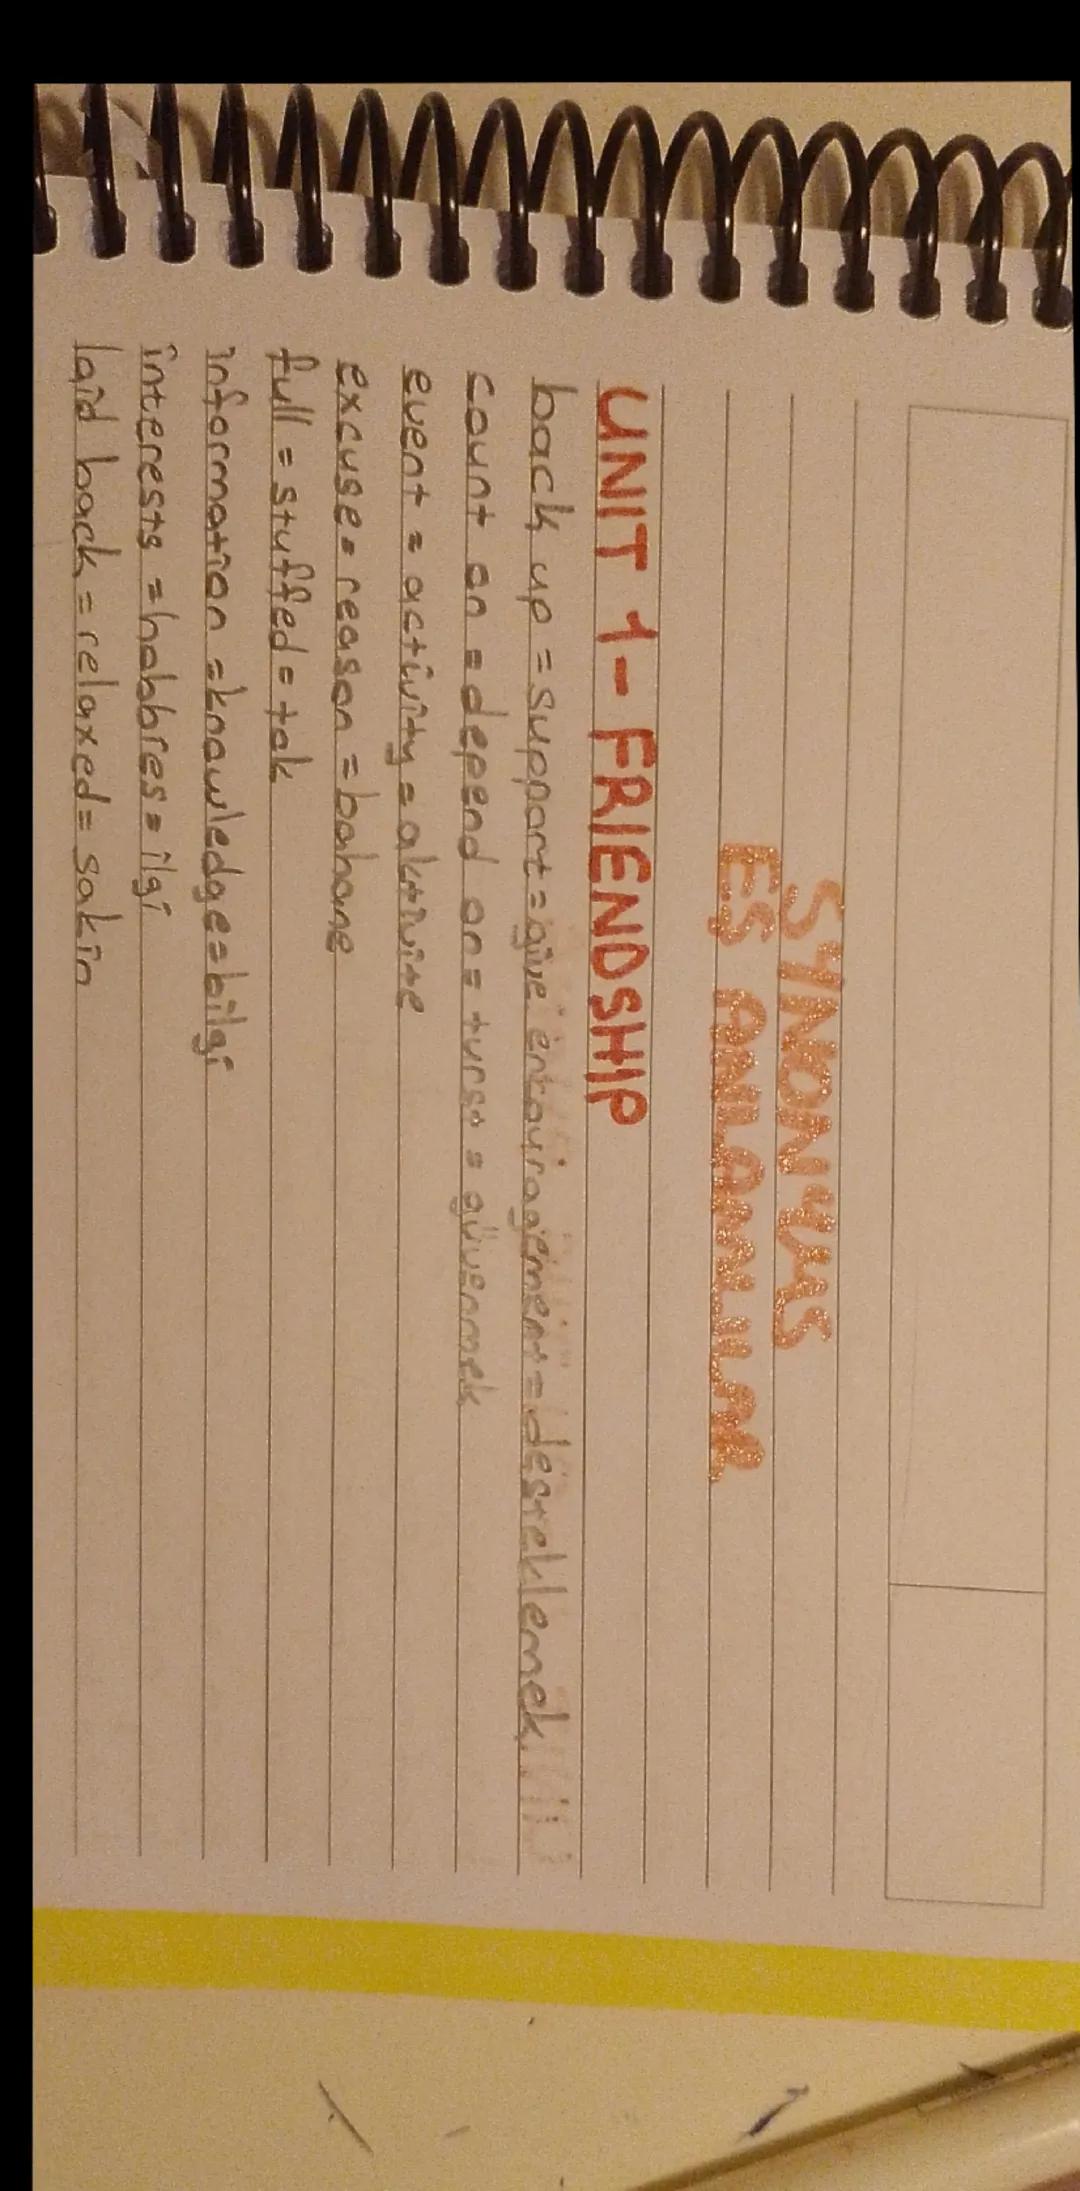 SYNONYMS
ES ANLAMLILAR
UNIT 1- FRIENDSHIP
back up = support = give encouragement = desteklemek
count on = depend on = turst = güvenmek
event = activity = aktivite
excuse = reason = bahane
full = stuffed = tok
information = knowledge = bilgi
interests = hobbies = ilgi
laid back = relaxed = sakin